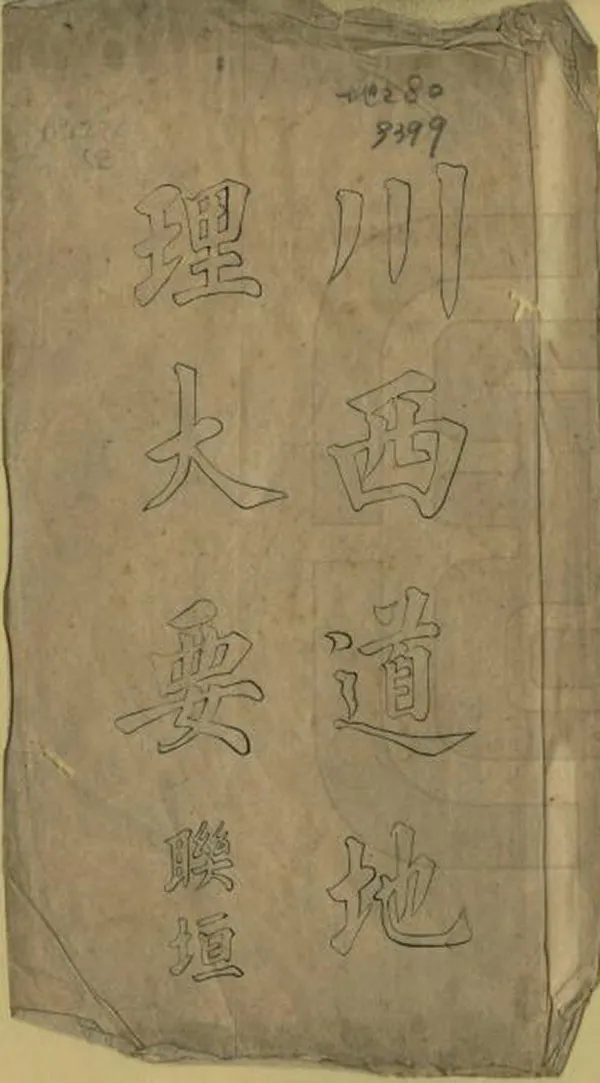 地280
3399
川西道地
理大要
聯垣